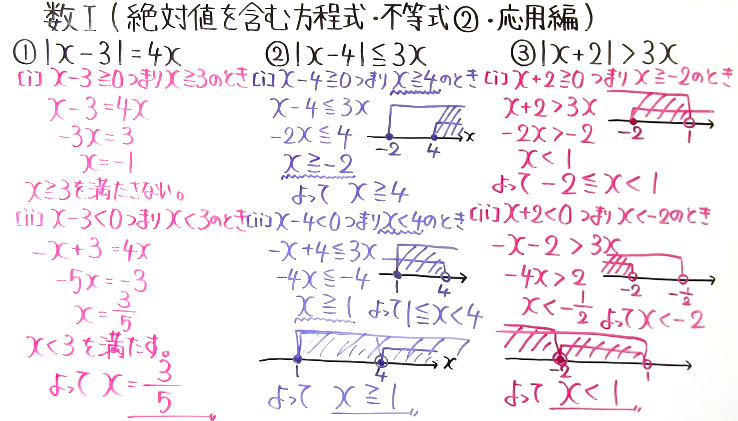 数Ⅰ(絶対値を含む方程式・不等式②・応用編)
①|x-3|=4x
[i] x-3≧0つまりx≧3のとき
x-3=4x
-3x=3
x=-1
x≧3を満たさない。
[ii] x-3<0つまりx<3のとき
-x+3=4x
-5x=-3
x=3/5
x<3を満たす。
よって x=3/5
②|x-4|≦3x
[i] x-4≧0つまりx≧4のとき
x-4≦3x
-2x≦4
x≧-2
-2 4 x
よって x≧4
[ii] x-4<0つまりx<4のとき
-x+4≦3x
-4x≦-4
1 4
x≧1 よって1≦x<4
1 4 x
よって x≧1
③|x+2|>3x
[i] x+2≧0つまりx≧-2のとき
x+2>3x
-2x>-2
-2 1
x<1
よって -2≦x<1
[ii] x+2<0つまりx<-2のとき
-x-2>3x
-4x>2
-2 -1/2
x<-1/2 よってx<-2
-2 1
よって x<1